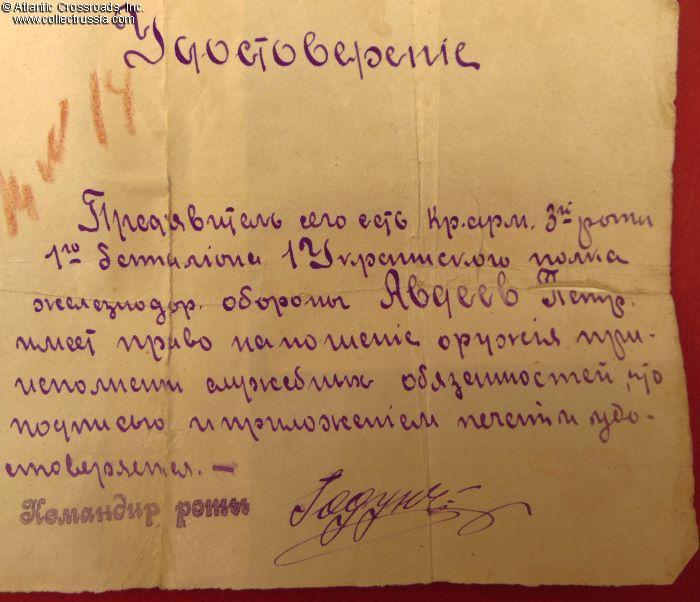 © Atlantic Crossroads, Inc.
www.collectrussia.com
Удостоверенiе
№ 14
Предявитель сего есть кр. арм. 3й роты
1го баталiона 1 Украинского полка
железнодор. обороны Авдеев Петр.
имеет право на ношенiе оружiя при-
исполнени служебных обязанностей, что
подписью и приложенiем печати удо-
стоверяется. —
Командир роты